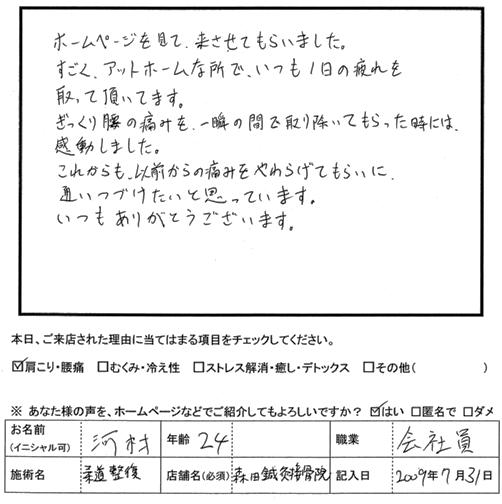 ホームページを見て、来させてもらいました。
すごく、アットホームな所で、いつも1日の疲れを
取って頂いてます。
ぎっくり腰の痛みを、一瞬の間で取り除いてもらった時には、
感動しました。
これからも、以前からの痛みをやわらげてもらいに、
通いつづけたいと思っています。
いつもありがとうございます。
本日、ご来店された理由に当てはまる項目をチェックしてください。
☑肩こり・腰痛 □むくみ・冷え性 □ストレス解消・癒し・デトックス □その他( )
※ あなた様の声を、ホームページなどでご紹介してもよろしいですか? ☑はい □匿名で □ダメ
お名前 (イニシャル可) 河村 年齢 24 職業 会社員
施術名 柔道整復 店舗名(必須) 森田鍼灸接骨院 記入日 2009年7月31日